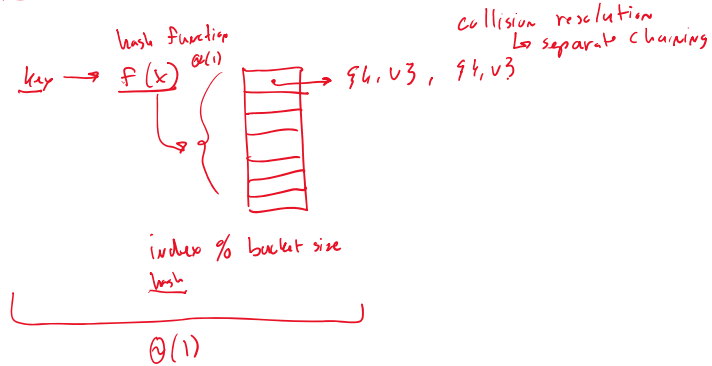 collision resolution
↳ separate chaining
hash function
Θ(1)
key → f(x)
{k, v}, {k, v}
index % bucket size
hash
Θ(1)